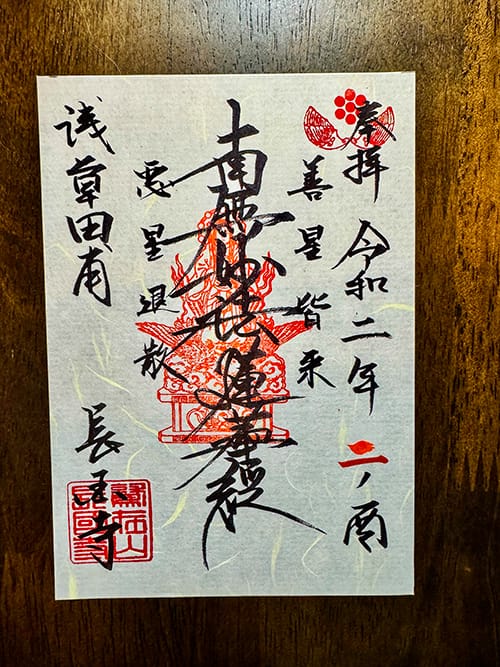 奉拝 令和二年 二ノ酉
善星皆来
南無妙法蓮華経
悪星退散
浅草田甫 長国寺
鷲在山
長國寺